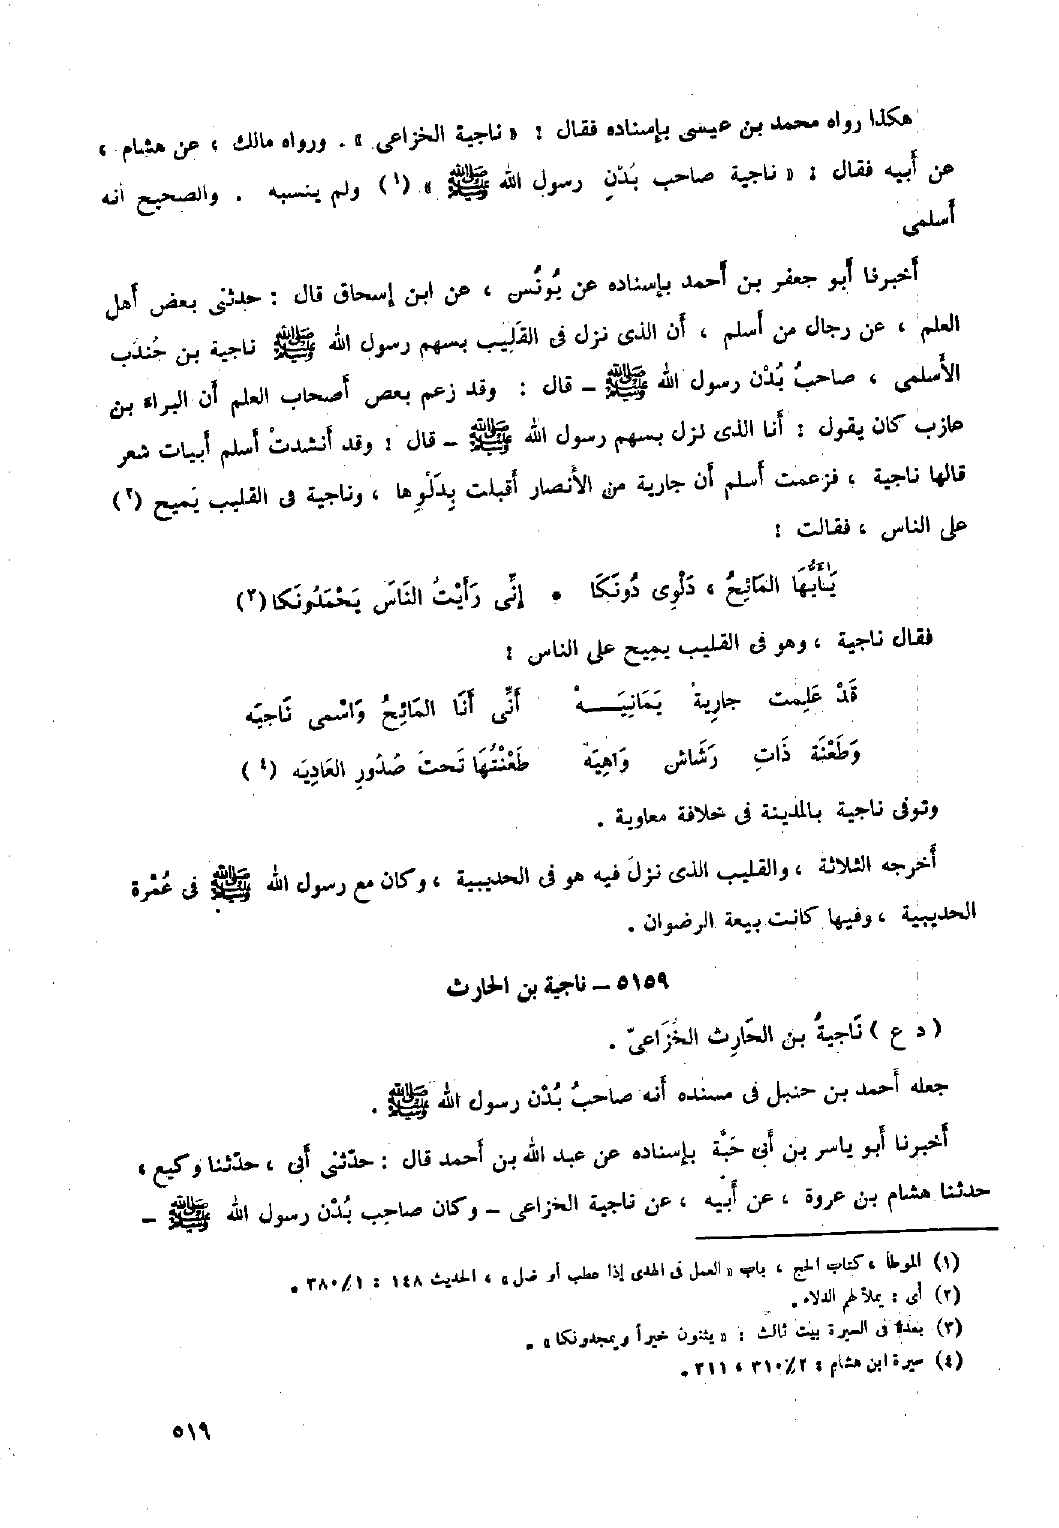 هكذا رواه محمد بن عيسى بإسناده فقال : « ناجية الخزاعى » . ورواه مالك ، عن هشام ،
عن أبيه فقال : « ناجية صاحب بُدْنِ رسول الله ﷺ » (١) ولم ينسبه . والصحيح أنه
أسلمى
أخبرنا أبو جعفر بن أحمد بإسناده عن يُونُس ، عن ابن إسحاق قال : حدثنى بعض أهل
العلم ، عن رجال من أسلم ، أن الذى نزل فى القَلِيب بسهم رسول الله ﷺ ناجية بن جُندَب
الأسلمى ، صاحبُ بُدْن رسول الله ﷺ – قال : وقد زعم بعض أصحاب العلم أن البراء بن
عازب كان يقول : أنا الذى نزل بسهم رسول الله ﷺ – قال : وقد أنشدتْ أسلم أبيات شعر
قالها ناجية ، فزعمت أسلم أن جارية من الأنصار أقبلت بِدَلْوِها ، وناجية فى القليب يَميح (٢)
على الناس ، فقالت :
يَأَيُّهَا المَائِحُ ، دَلْوِى دُونَكَا * إنِّى رَأَيْتُ النَّاسَ يَحْمَدُونَكا (٣)
فقال ناجية ، وهو فى القليب يميح على الناس :
قَدْ عَلِمت جارِيةٌ يَمَانِيَـــهْ أنِّى أنَا المَائِحُ وَاسْمى نَاجِيَه
وَطَعْنَة ذَاتِ رَشَاش وَاهِيَهْ طَعْنْتُهَا تَحتَ صُدُورِ العَادِيَه (٤)
وتوفى ناجية بالمدينة فى خلافة معاوية .
أخرجه الثلاثة ، والقليب الذى نزلَ فيه هو فى الحديبية ، وكان مع رسول الله ﷺ فى عُمْرة
الحديبية ، وفيها كانت بيعة الرضوان .
٥١٥٩ – ناجية بن الحارث
( د ع ) نَاجِيةُ بن الحَارِث الخُزَاعىّ .
جعله أحمد بن حنبل فى مسنده أنه صاحبُ بُدْن رسول الله ﷺ .
أخبرنا أبو ياسر بن أبى حَبَّة بإسناده عن عبد الله بن أحمد قال : حدّثنى أبى ، حدّثنا وكيع ،
حدثنا هشام بن عروة ، عن أبيه ، عن ناجية الخزاعى – وكان صاحِب بُدْن رسول الله ﷺ –
(١) الموطأ ، كتاب الحج ، باب « العمل فى الهدى إذا عطب أو ضل » ، الحديث ١٤٨ : ٣٨٠/١ .
(٢) أى : يملأ لهم الدلاء .
(٣) بعده فى السيرة بيت ثالث : « يثنون خيراً ويمجدونكا » .
(٤) سيرة ابن هشام : ٣١٠/٢ ، ٣١١ .
٥١٩